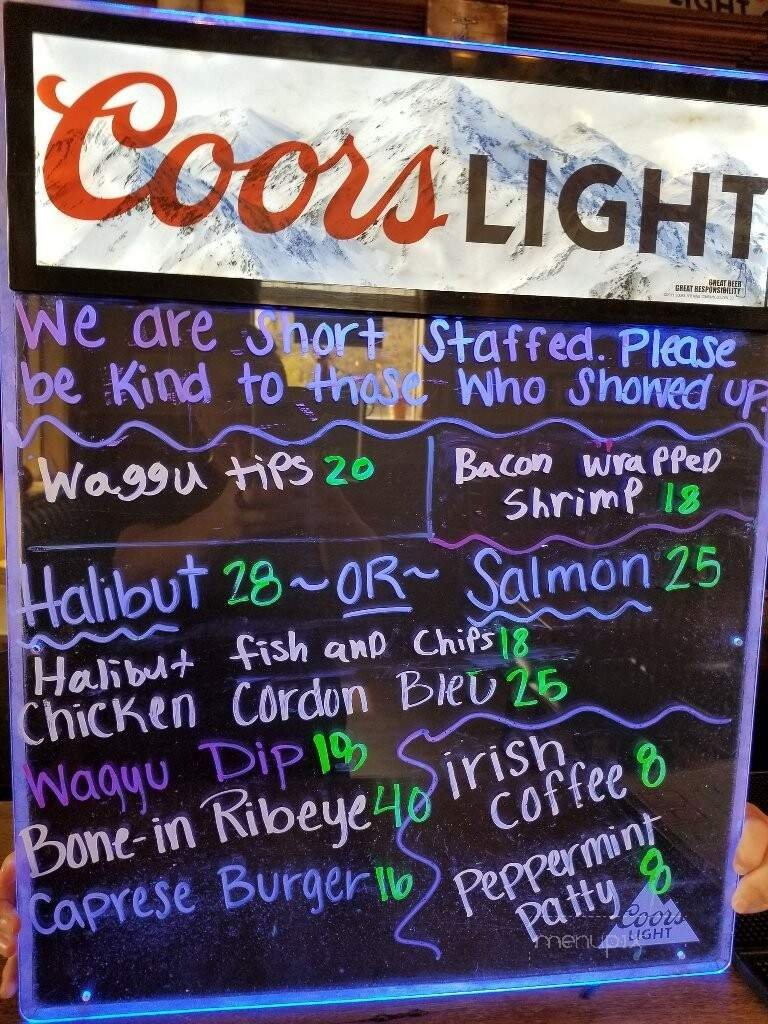 LIGHT
Coors LIGHT
GREAT BEER
GREAT RESPONSIBILITY
We are Short Staffed. Please
be Kind to those Who Showed up.
Waggu tips 20
Bacon wrapped
Shrimp 18
Halibut 28 ~OR~ Salmon 25
Halibut fish and Chips 18
Chicken Cordon Bleu 25
Wagyu Dip
Bone-in Ribeye 40
Caprese Burger 16
irish
Coffee 8
Peppermint
Patty 8
Coors
LIGHT
menupix